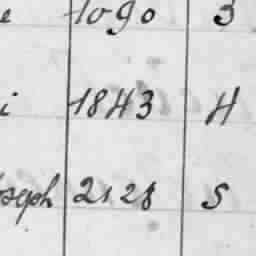 e 1090 3
i 1843 H
oseph 2128 S